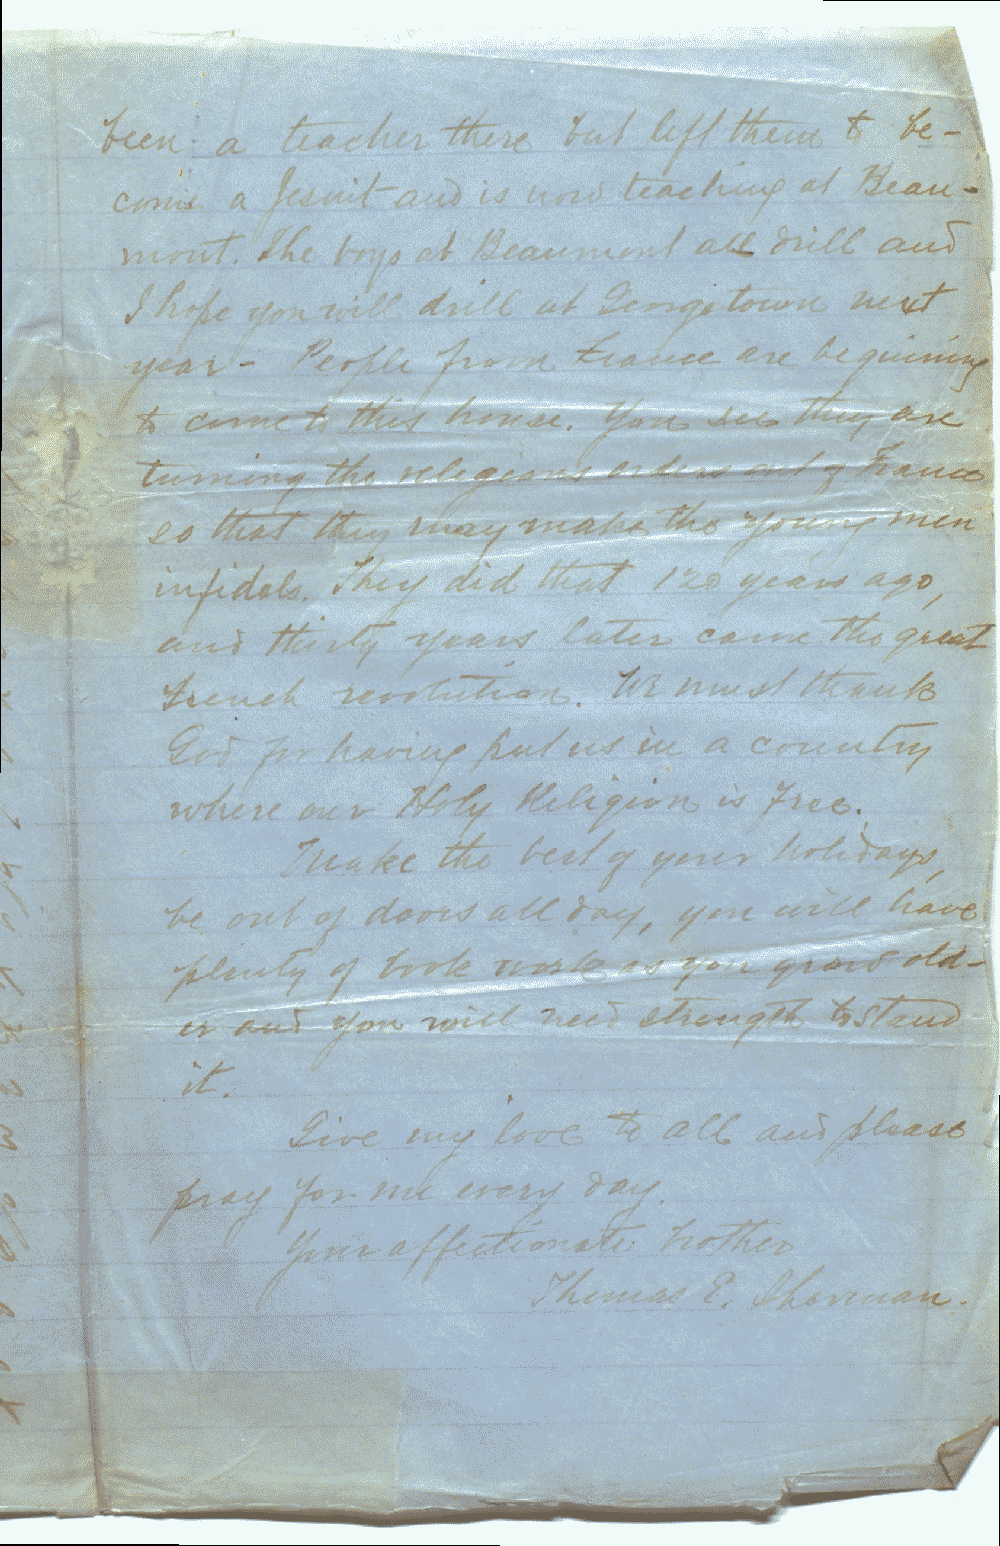 been a teacher there but left them to be-
come a Jesuit and is now teaching at Beau-
mont. The boys at Beaumont all drill and
I hope you will drill at Georgetown next
year - People from France are beguining
to come to this house. You see they are
turning the religious orders out of France
so that they may make the young men
infidels. They did that 120 years ago,
and thirty years later came the great
French revolution. We must thank
God for having put us in a country
where our Holy Religion is free.
Make the best of your holidays,
be out of doors all day, you will have
plenty of book work as you grow old-
er and you will need strength to stand
it.
Give my love to all and please
pray for me every day.
Your affectionate brother
Thomas E. Sherman.